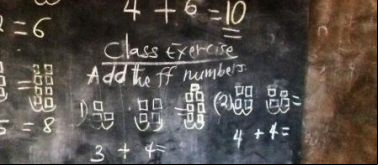 4 + 6 = 10
2 = 6
Class Exercise
Add the ff numbers.
1) = (2) =
5 = 8
3 + 4 =
4 + 4 =